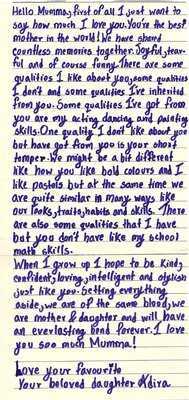 Hello Mumma, first of all I just want to
say how much I love you. You're the best
mother in the world! We have shared
countless memories together. Joyful, tear-
ful and of course funny. There are some
qualities I like about you, some qualities
I don't and some qualities I've inherited
from you. Some qualities I've got from
you are my acting, dancing and painting
skills. One quality I don't like about you
but have got from you is your short
temper. We might be a bit different
like how you like bold colours and I
like pastels but at the same time we
are quite similar in many ways like
our looks, traits, habits and skills. There
are also some qualities that I have
but you don't have like my school
math skills.
When I grow up I hope to be kind,
confident, loving, intelligent and stylish
just like you. Setting everything
aside, we are of the same blood, we
are mother & daughter and will have
an everlasting bond forever. I love
you soo much Mumma!
Love your favourite
Your beloved daughter